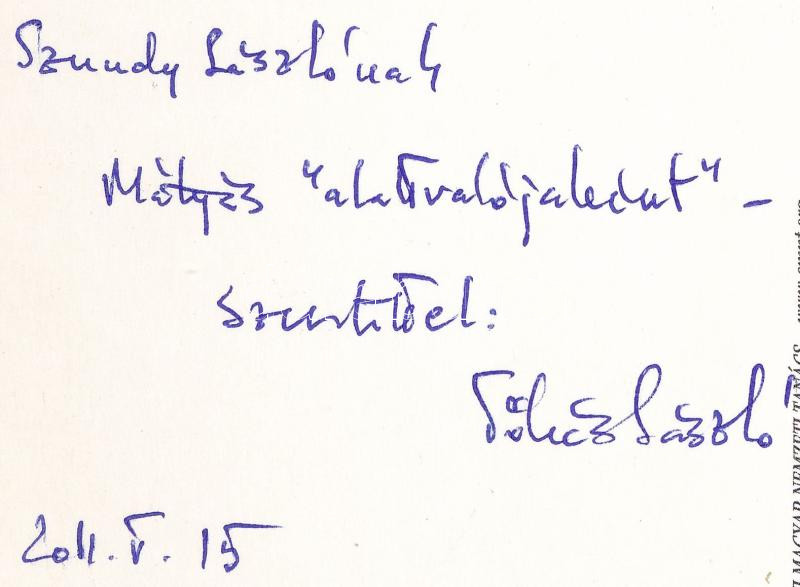 Szundy Lászlónak
Mátyás "alattvalójaként" –
szeretettel:
Tőkés László
2011. V. 15
MAGYAR NEMZETI TANÁCS